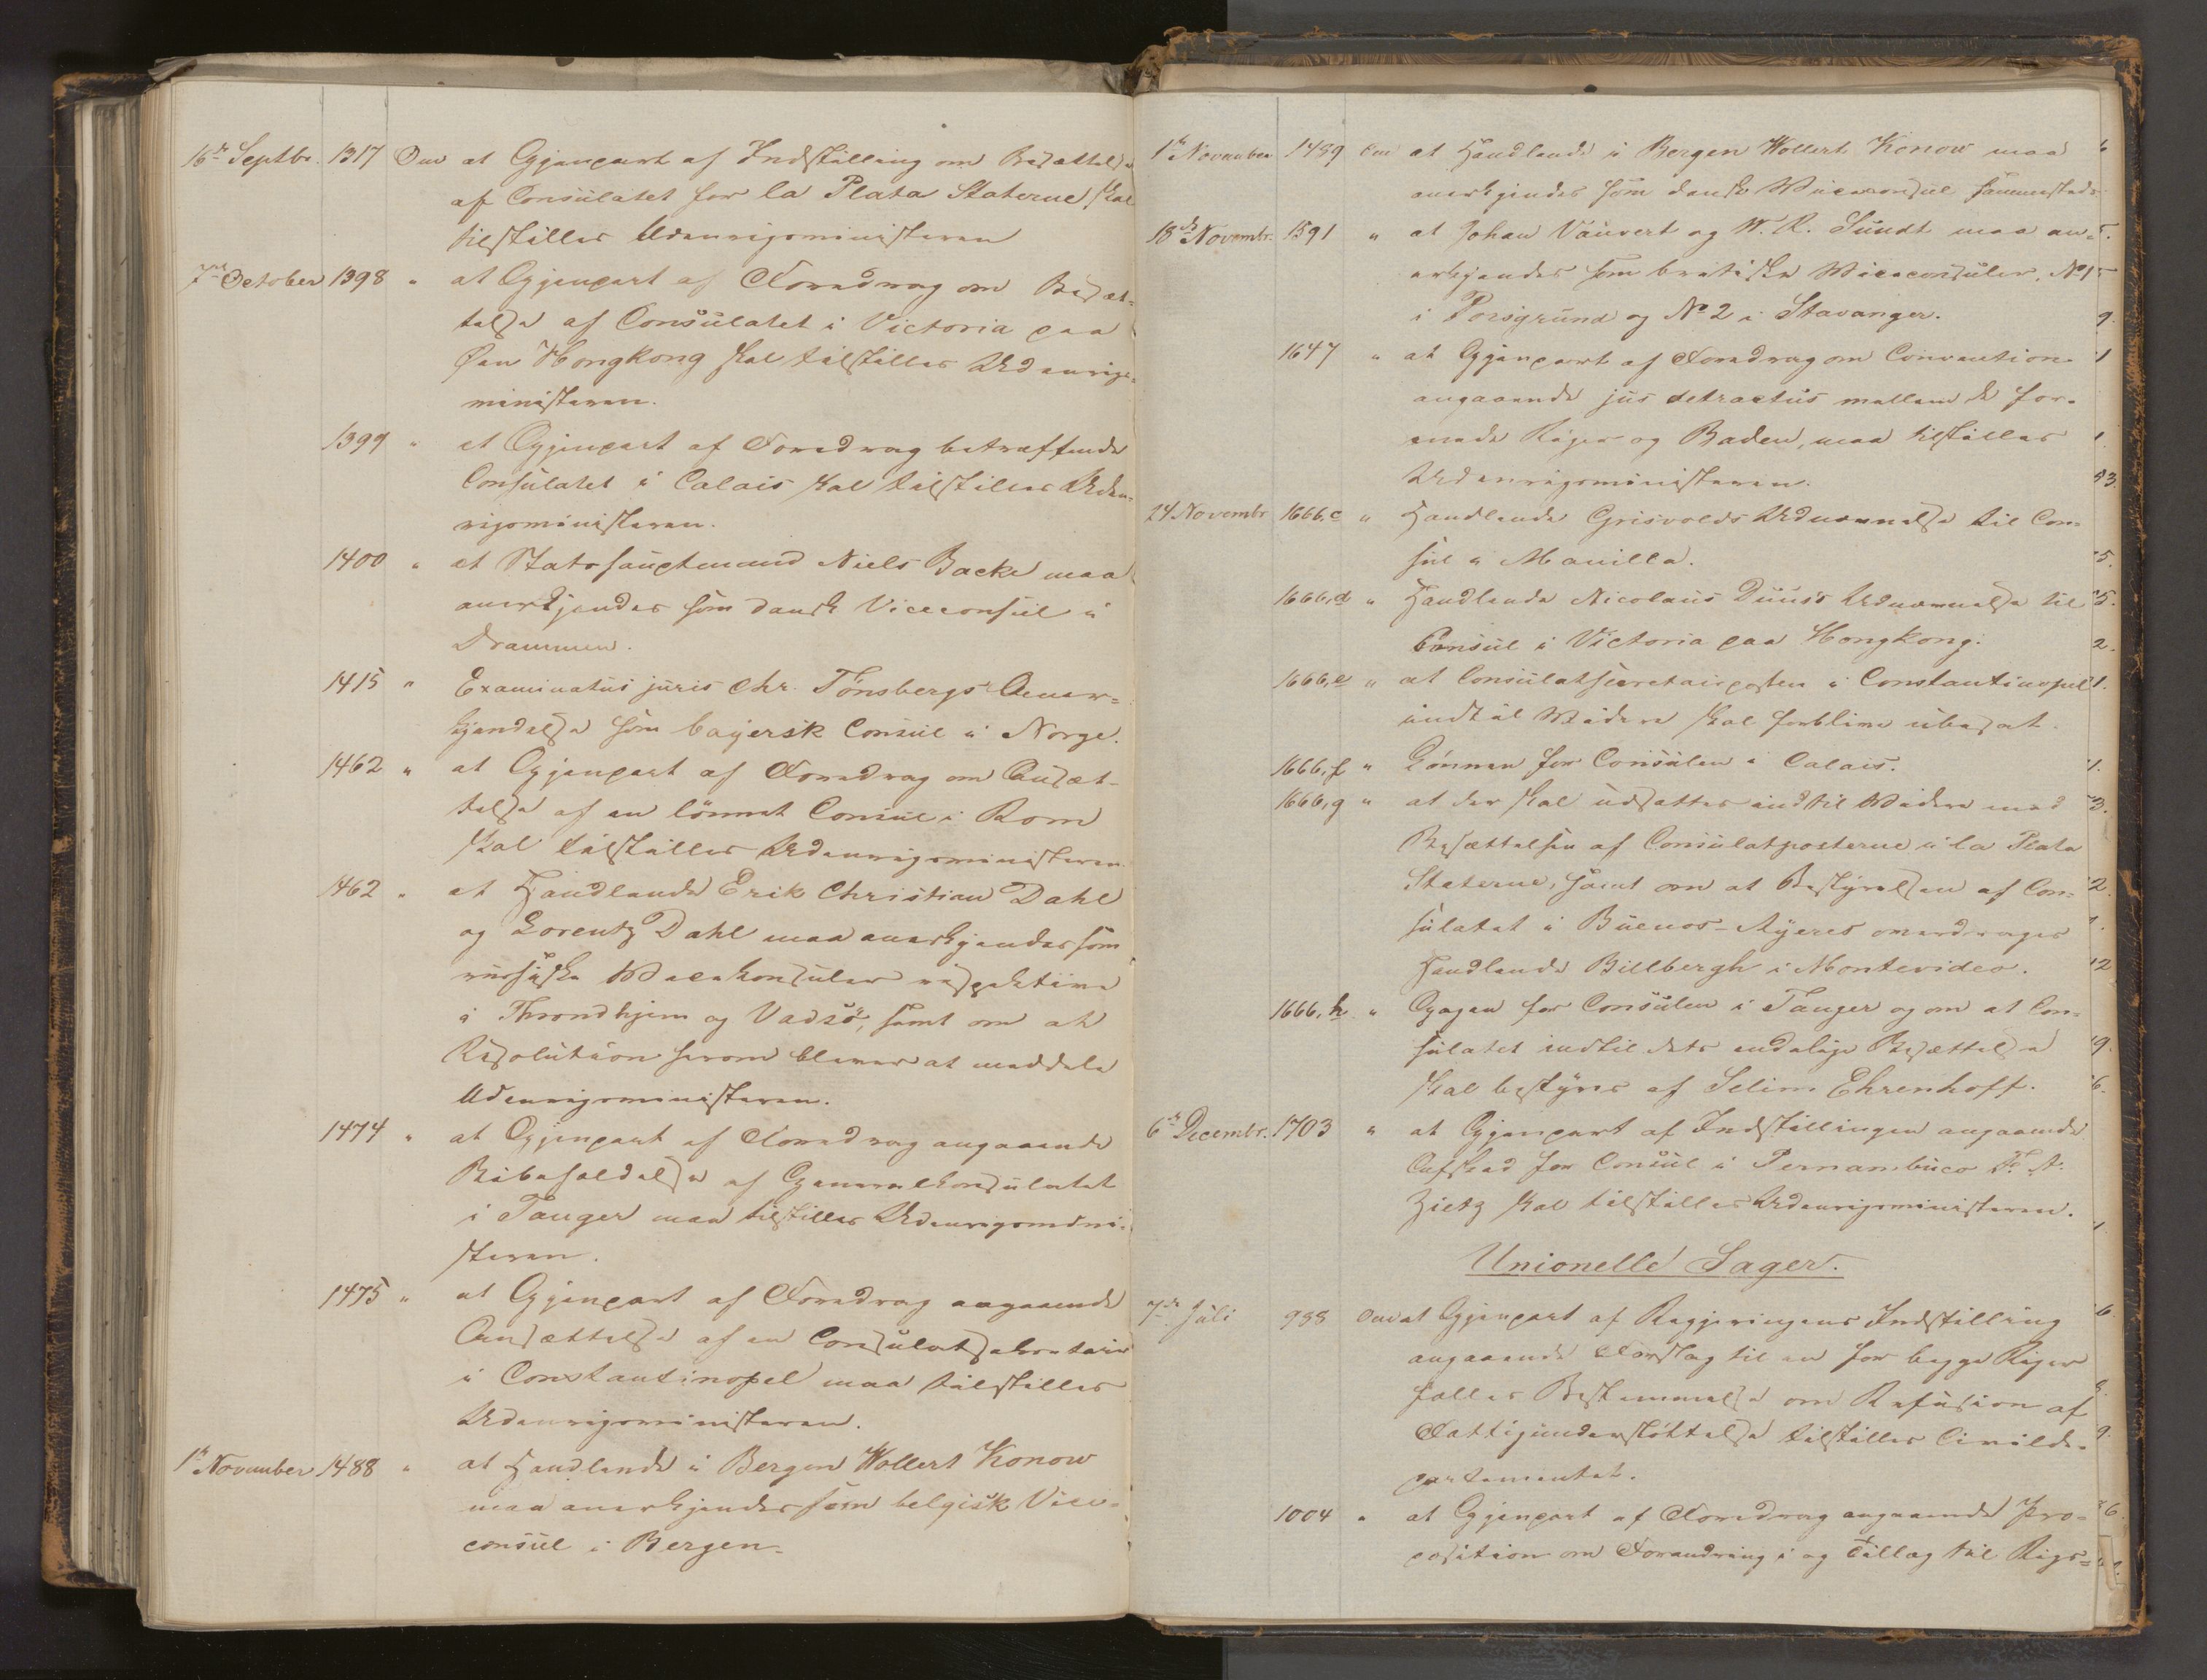 16de Septbr. 1317 Om at Gjenpart af Indstilling om Besættelse
af Consulatet for la Plata Staterne skal
tilstilles Udenrigsministeren
7de October 1398 " at Gjenpart af Foredrag om Besæt-
telse af Consulatet i Victoria paa
Øen Hongkong skal tilstilles Udenrigs-
ministeren.
1399 " at Gjenpart af Foredrag betræffende
Consulatet i Calais skal tilstilles Uden-
rigsministeren.
1400 " at Stadshauptmand Niels Backe maa
anerkjendes som dansk Viceconsul i
Drammen.
1415 " Examinatus juris Chr. Tönsbergs Aner-
kjendelse som bayersk Consul i Norge.
1462 " at Gjenpart af Foredrag om Ansæt-
telse af en lönnet Consul i Rom
skal tilstilles Udenrigsministeren
1462 " at Handlende Erik Christian Dahl
og Lorentz Dahl maa anerkjendes som
russiske Vicekonsuler respektive
i Throndhjem og Vadsö, samt om at
Resolution herom bliver at meddele
Udenrigsministeren.
1474 " at Gjenpart af Foredrag angaaende
Bibeholdelse af Generalkonsulatet
i Tanger maa tilstilles Udenrigsmini-
steren.
1475 " at Gjenpart af Foredrag angaaende
Ansættelse af en Consulatsekretair
i Constantinopel maa tilstilles
Udenrigsministeren.
1ste November 1488 " at Handlende i Bergen Wollert Konow
maa anerkjendes som belgisk Vice-
consul i Bergen.
1ste November 1489 Om at Handlende i Bergen Wollert Konow maa
anerkjendes som dansk Viceconsul sammesteds
18de Novembr. 1591 " at Johan Vauvert og W. R. Sundt maa an-
erkjendes som brittiske Viceconsuler, No 1
i Porsgrund og No 2 i Stavanger.
1647 " at Gjenpart af Foredrag om Convention
angaaende jus detractus mellem de for-
enede Riger og Baden, maa tilstilles
Udenrigsministeren.
24 Novembr 1666,c " Handlende Grisvolds Udnævnelse til Con-
sul i Manilla.
1666,d " Handlende Nicolaus Duus's Udnævnelse til
Consul i Victoria paa Hongkong.
1666,e " at Consulatsecretairposten i Constantinopel
indtil Videre skal forblive ubesat.
1666,f " Lönnen for Consulen i Calais.
1666,g " at der skal udsættes indtil Videre med
Besættelsen af Consulatposterne i la Plata
Staterne, samt om at Bestyrelsen af Con-
sulatet i Buenos-Ayeres overdrages
Handlende Billbergh i Montevideo.
1666,h " Gagen for Consulen i Tanger og om at Con-
sulatet indtil dets endelige Besættelse
skal bestyres af Selim Ehrenhoff.
6te Decembr. 1703 " at Gjenpart af Indstillingen angaaende
Afsked for Consul i Pernambuco F. A.
Zietz skal tilstilles Udenrigsministeren.
Unionelle Sager.
7de Juli 988 Om at Gjenpart af Regjeringens Indstilling
angaaende Forslag til en for begge Riger
fælles Bestemmelse om Refusion af
Fattigunderstöttelse tilstilles Civilde-
partementet.
1004 " at Gjenpart af Foredrag angaaende Pro-
position om Forandring i og Tillæg til Rigs-